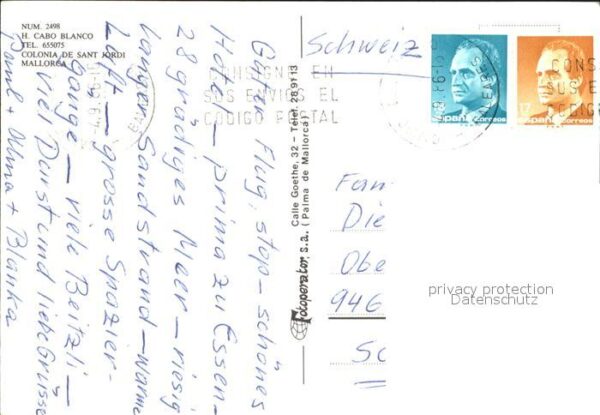 NUM. 2498
H. CABO BLANCO
TEL. 655075
COLONIA DE SANT JORDI
MALLORCA
Guter Flug, stop - schönes
Hotel - prima zu Essen -
28 grädiges Meer - riesig
langer Sandstrand - warme
Luft - grosse Spazier-
gänge - viele Beitzli -
viel Durst und liebe Grüsse
Paul + + Blanka
Calle Goethe, 32 - Telef. 289113
Fotoperator, s.a., (Palma de Mallorca)
Schweiz
CONSIGNE EN
SUS ENVIOS EL
CODIGO POSTAL
España correos
17
España correos
CONS
SUS E
CODIG
Fam
Die
Obe
946
Sc
privacy protection
Datenschutz